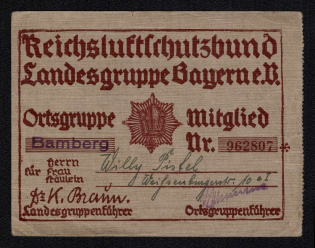 Reichsluftschutzbund
Landesgruppe Bayern e.V.
Ortsgruppe Mitglied
Bamberg Nr. 962807
für Herrn Frau Fräulein Willy
Weißenburgerstr. 10
Dr. K. Braun.
Landesgruppenführer Ortsgruppenführer